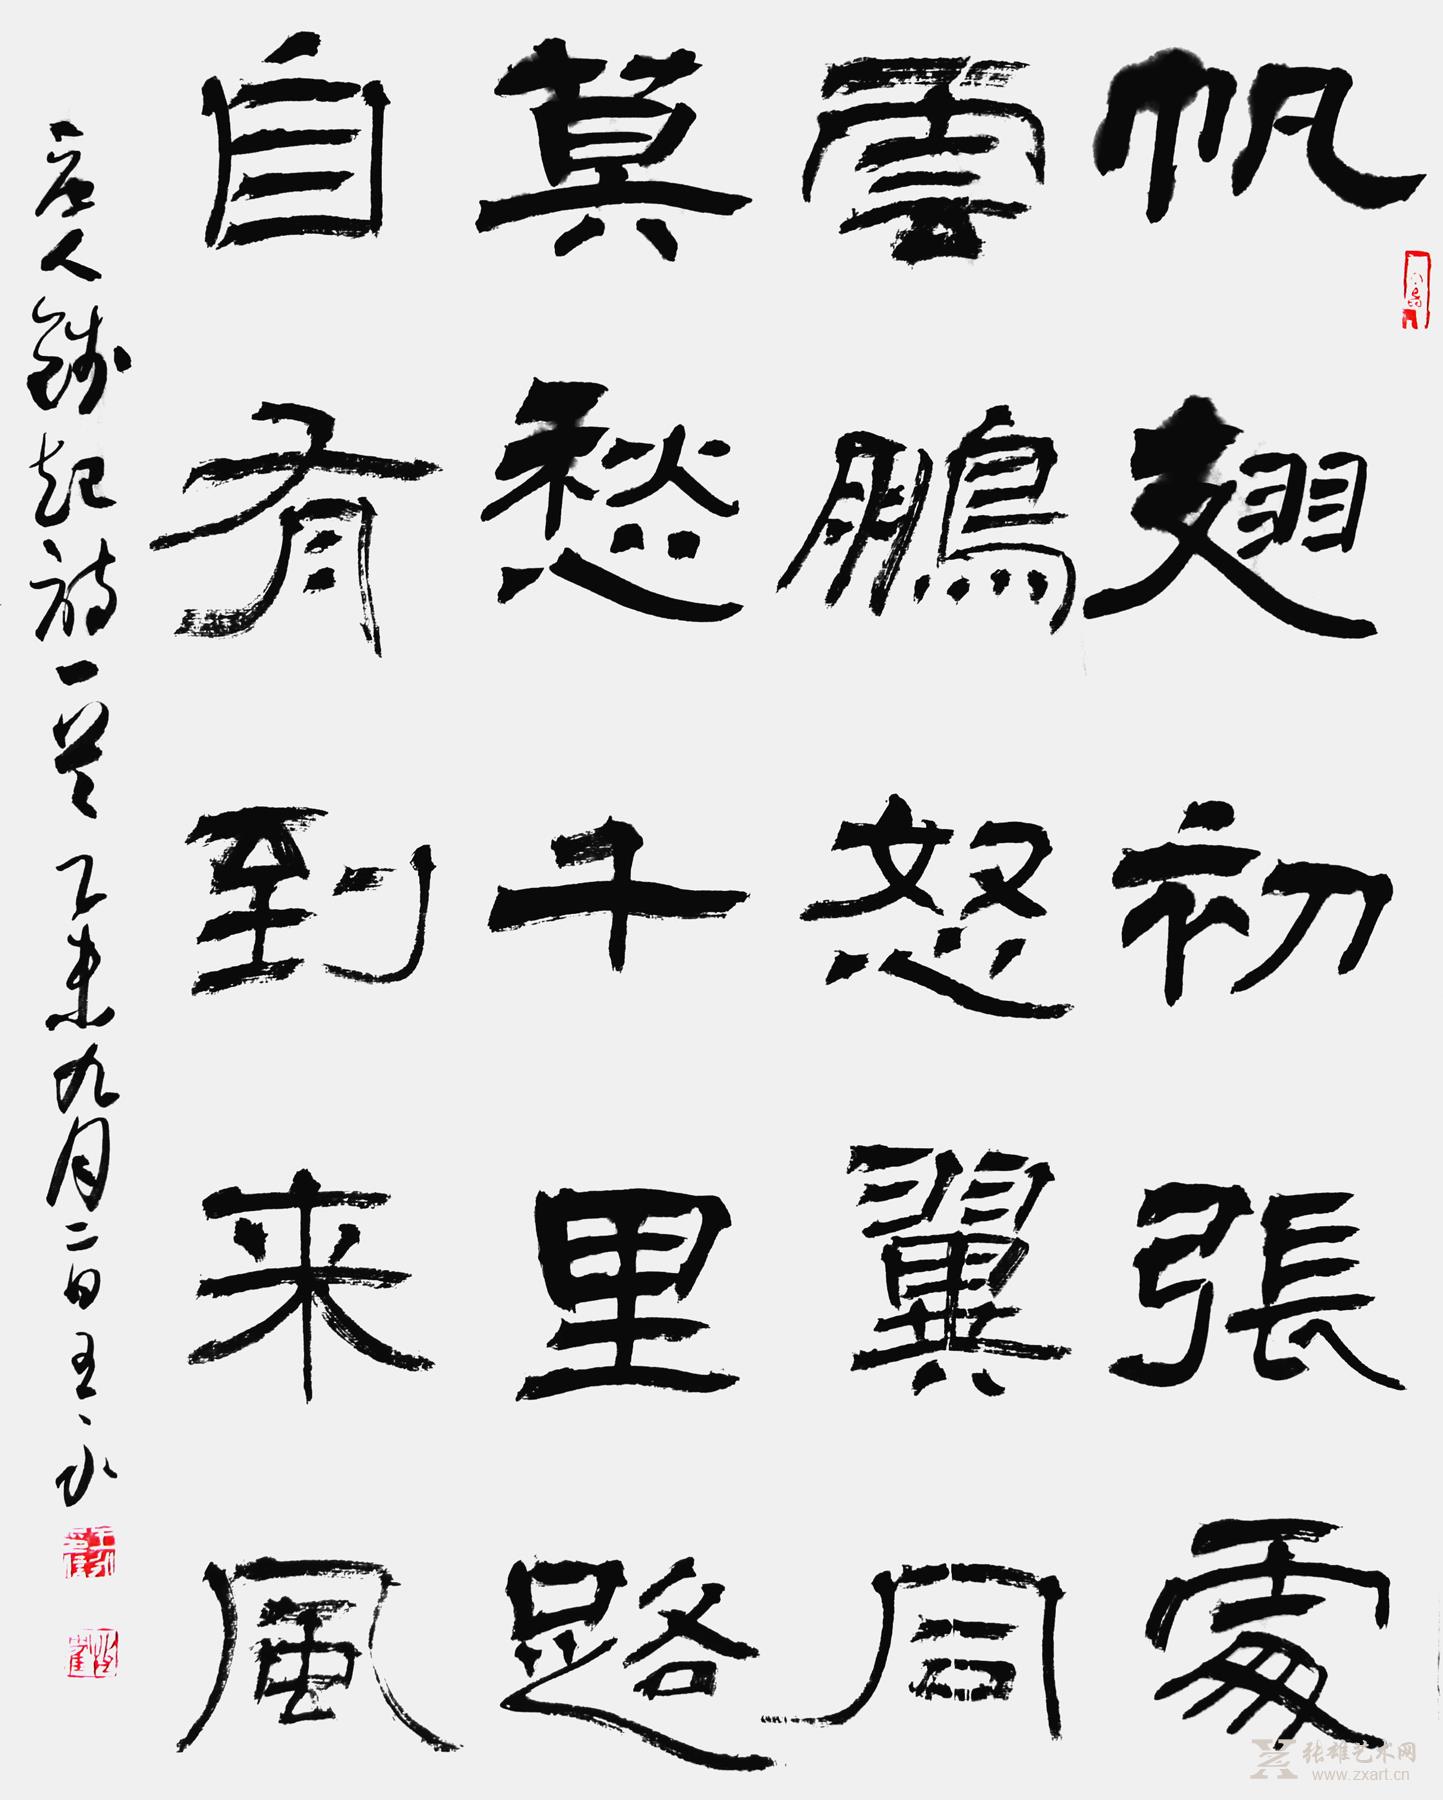 帆翅初張處
雲鵬怒翼同
莫愁千里路
自有到来風
唐人錢起詩一首乙未九月二日王永
张雄艺术网
www.zxart.cn